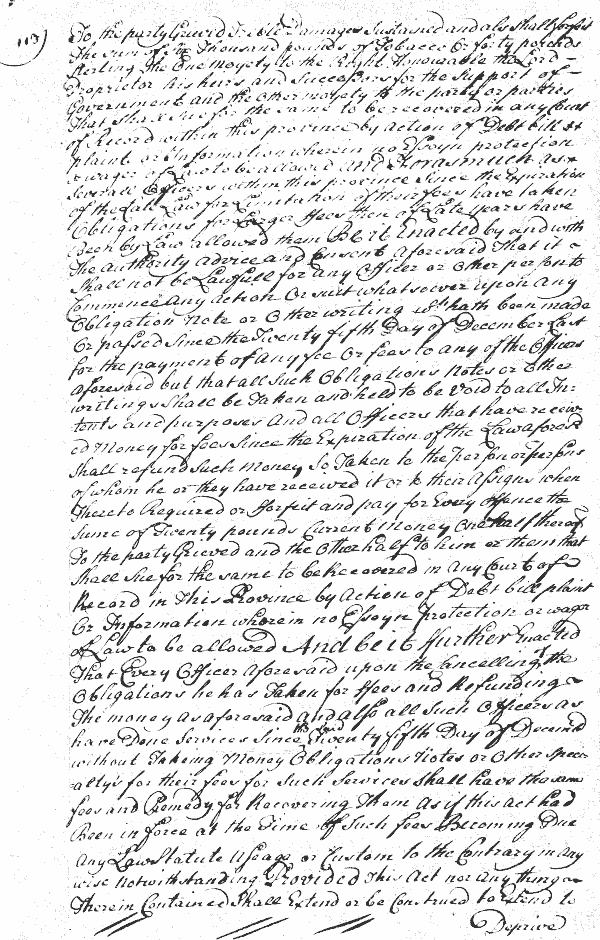 113)
To the party Grieved Treble Damages Sustained and also Shall forfeit
The sum of Six Thousand pounds of Tobacco Or forty pounds
Sterling The One moyety to the Right Honourable the Lord
Proprietor his heirs and Successors for the Support of
Government and the Other moyety to the party or parties
That shall sue for the same to be recovered in any Court
of Record within this province by Action of Debt bill
plaint or Information wherein no Essoyn protection
or wager of Law to be allowed And Forasmuch as
Severall Officers within this province Since the Expiration
of the late Law for Limitation of Officers fees have taken
Obligations for Larger ffees then of Late years have
been by Law allowed them Be it Enacted by and with
The Authority advice and Consent aforesaid That it
Shall not be Lawfull for any Officer or Other persons to
Commence any action Or suit whatsoever upon any
Obligation Note or Other writing wch hath been made
Or passed Since the Twenty fifth Day of December Last
for the payment of any fee Or fees to any of the Officers
aforesaid but that all Such Obligations Notes or Other
writings Shall be Taken and held to be Void to all In=
tents and purposes And all Officers that have receiv
ed Money for fees Since the Expiration of the Law aforesd
Shall refund Such Money So Taken to the person or persons
of whom he or they have received it or to their Assigns when
Thereto Required or fforfeit and pay for Every Offence the
Sume of Twenty pounds Current money One half thereof
To the party Grieved and the Other half to him or them that
Shall Sue for the same to be Recovered in any Court of
Record in This Province by Action of Debt bill plaint
Or Information wherein no Essoyn Protection or wager
of Law to be allowed And be it ffurther Enacted
That Every Officer Aforesaid upon the Cancelling the
Obligations he has Taken for ffees and Refunding
The money as aforesaid and also all Such Officers as
have Done Services Since the said Twenty fifth Day of Decemb
without Taking Money Obligations Notes or Other Speci
altys for their fees for Such Services Shall have the same
fees and Remedy for Recovering Them as if this Act had
Been in force at the Time of Such fees Becoming Due
Any Law Statute Useage or Custom to the Contrary in Any
wise notwithstanding Provided This Act nor Any thing
Therein Contained Shall Extend or be Construed to Extend to
Deprive